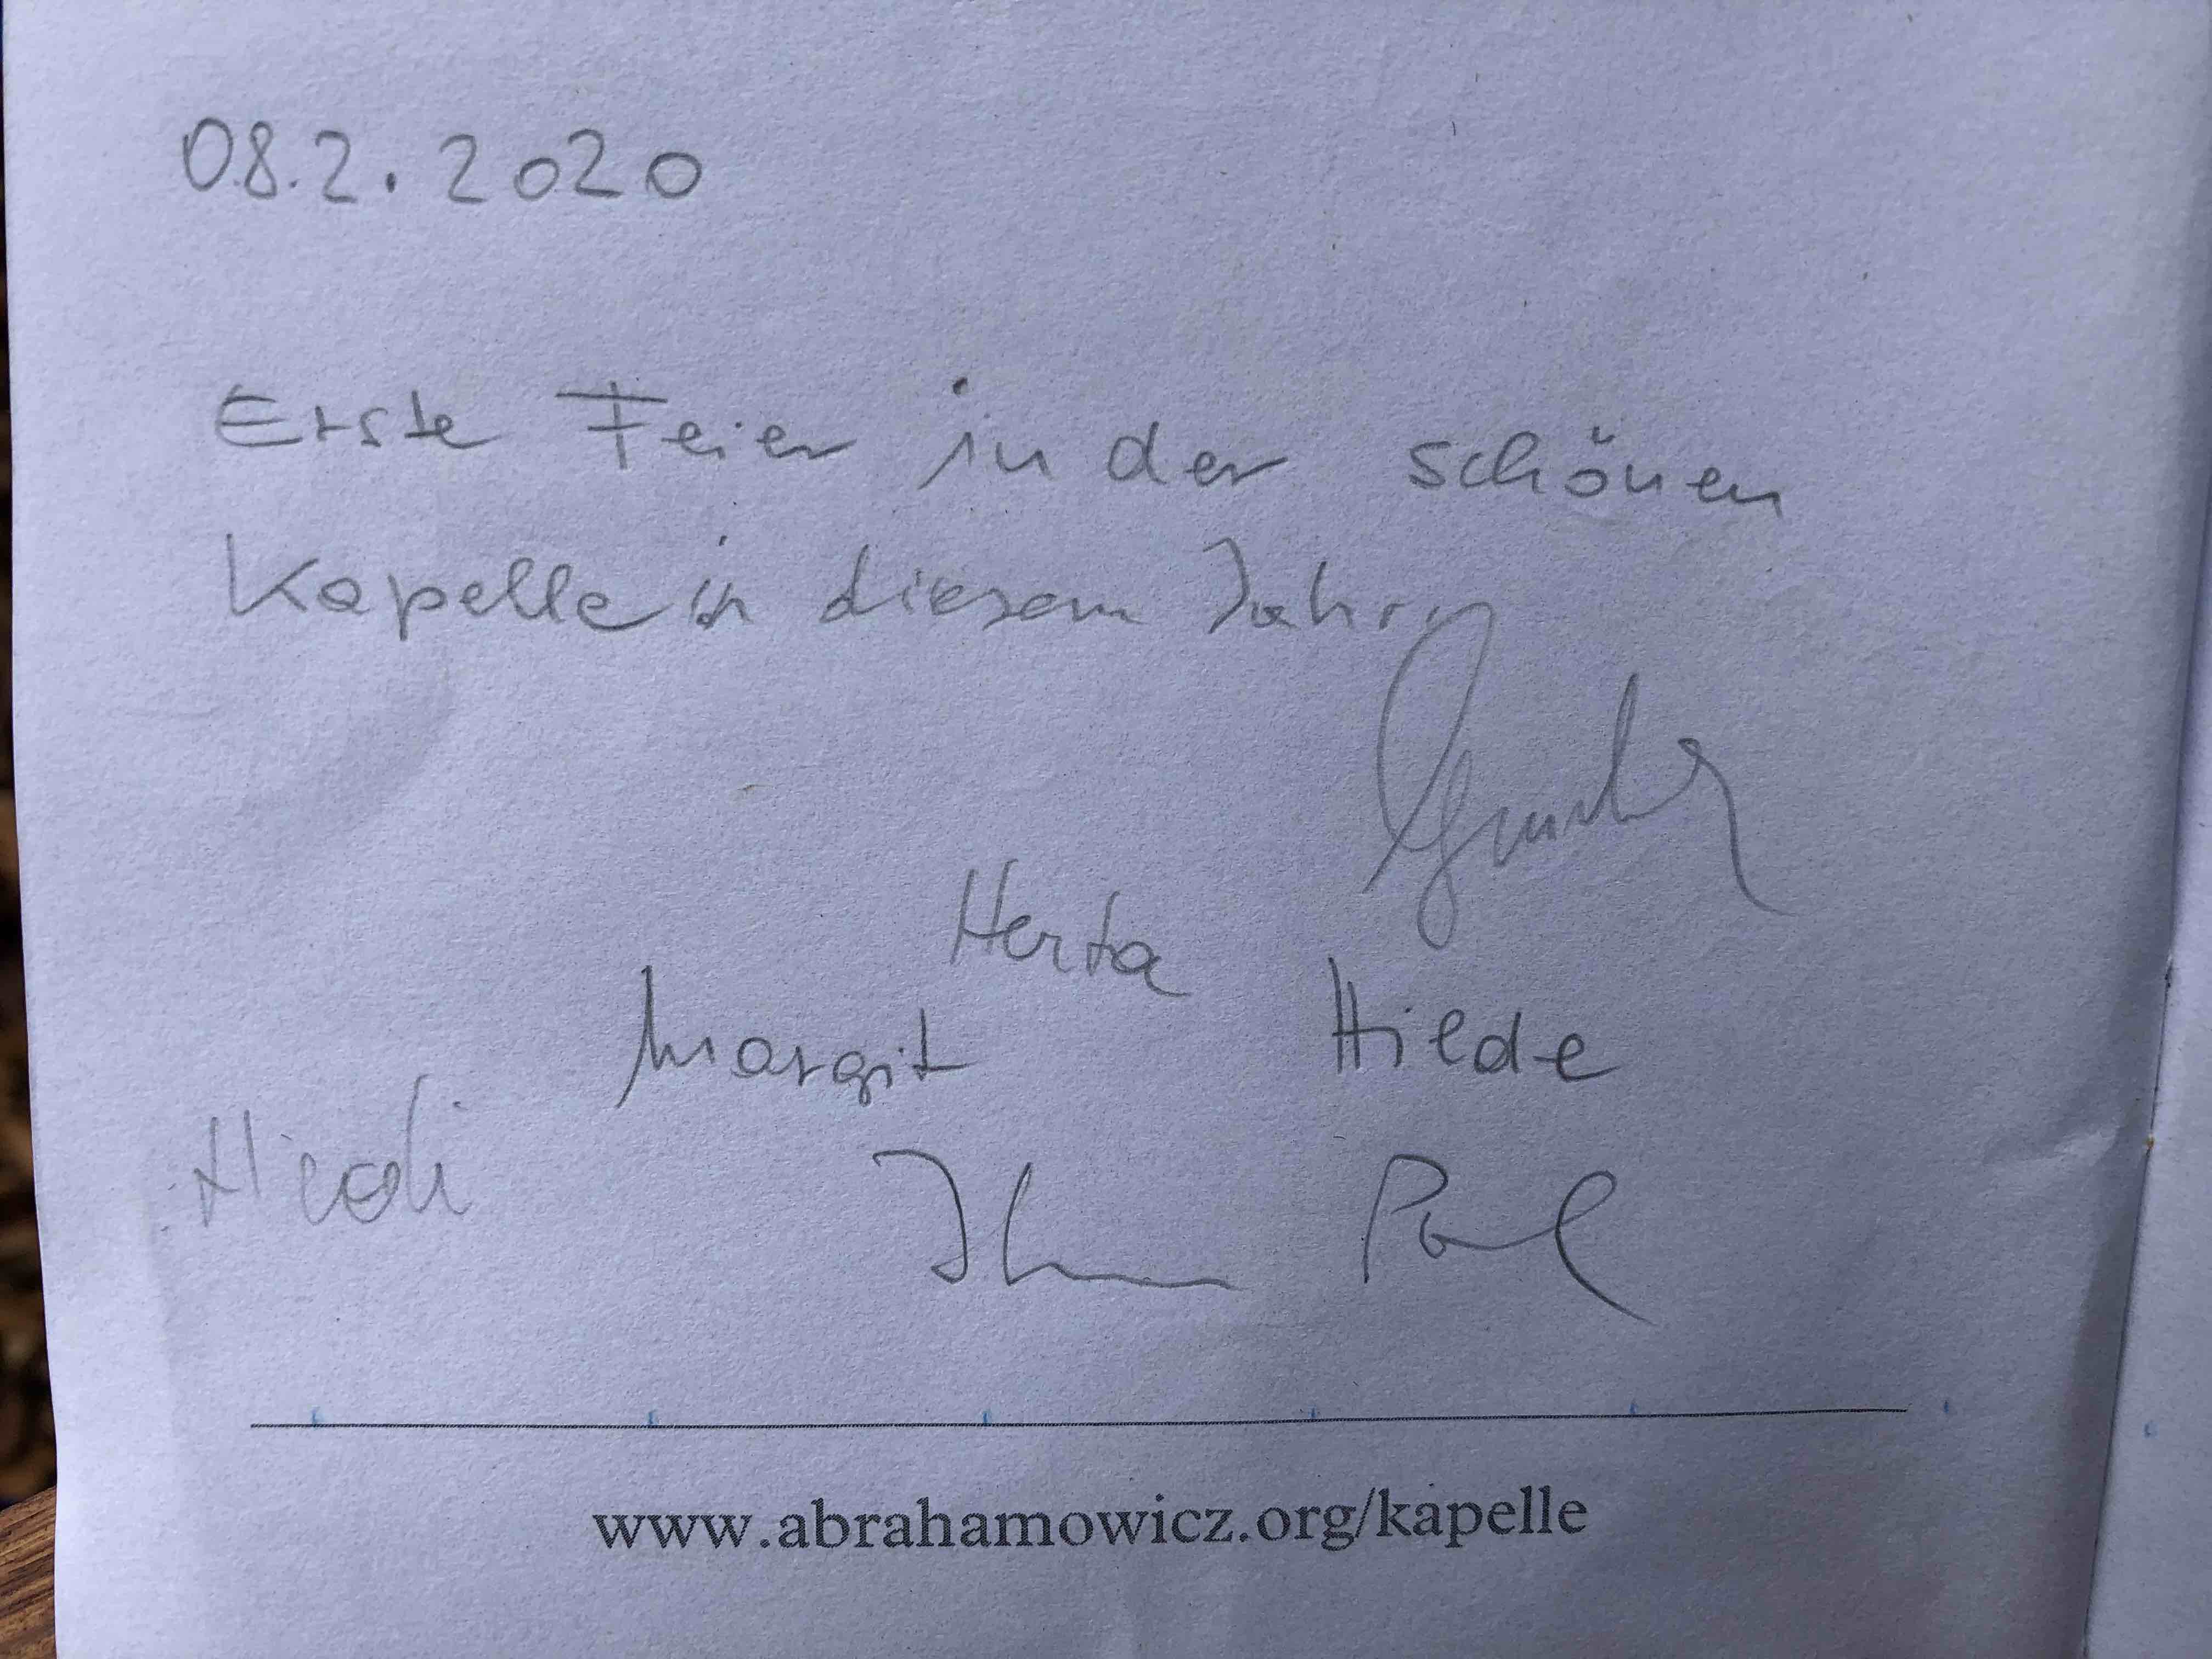 08.2.2020
Erste Feier in der schönen
Kapelle in diesem Jahr,
Herta
Margit Hilde
Heidi Paul
www.abrahamowicz.org/kapelle